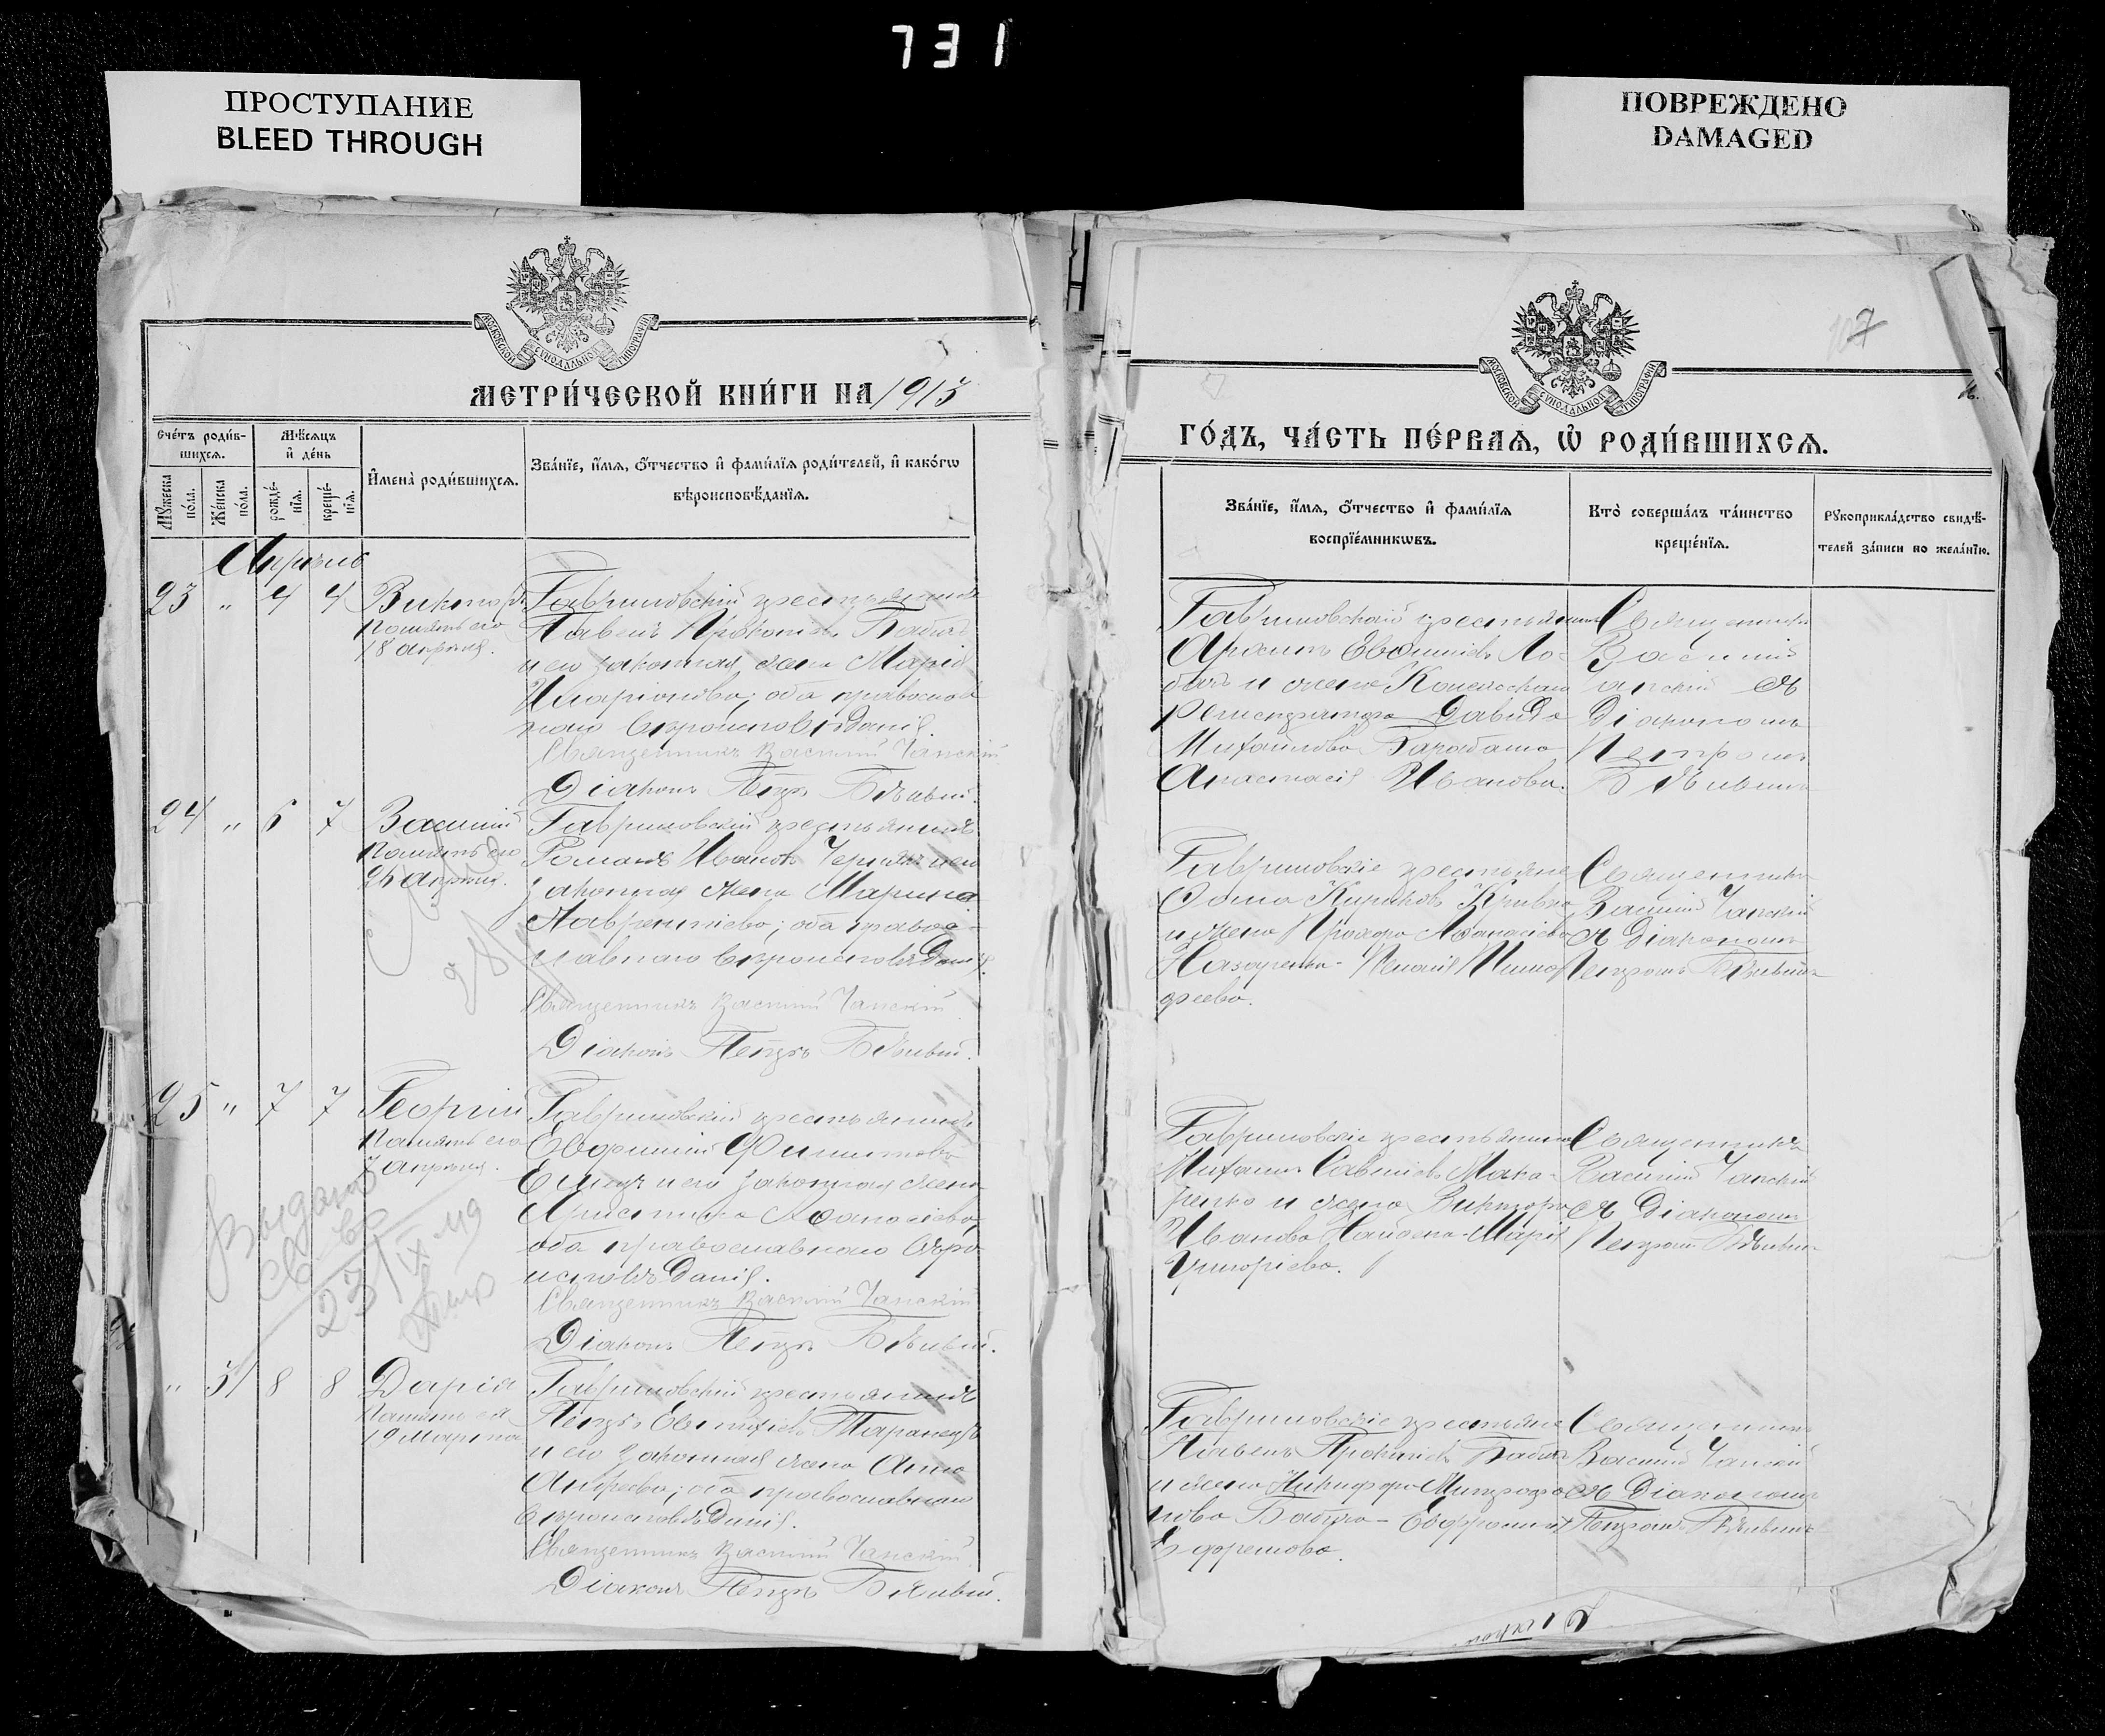 731
ПРОСТУПАНИЕ
BLEED THROUGH
ПОВРЕЖДЕНО
DAMAGED
МОСКОВСКОЙ СѴНОДАЛЬНОЙ ТИПОГРАФІИ
МЕТРИ́ЧЕСКОЙ КНИ́ГИ НА 1913
Сче́тъ роди́в-
шихсѧ.
Мѣ́сѧцъ
и҆ де́нь
Мꙋ́жеска
по́ла.
Же́нска
по́ла.
рожде́-
нїѧ.
креще́-
нїѧ.
И҆мена̀ роди́вшихсѧ.
Зва́нїе, и҆́мѧ, ѻ҆́тчество и҆ фами́лїѧ роди́телей, и҆ како́гѡ
вѣроисповѣ́данїѧ.
Апрѣль
23 " 4 4 Викторъ
Память его
18 апрѣля.
Гавриловскій крестьянинъ
Павелъ Прокопіевъ Бабичъ
и его законная жена Марія
Иларіонова; оба православ
наго вѣроисповѣданія.
Священникъ Василий Чапскій
Діаконъ Петръ Бѣлывій.
24 " 6 7 Василій
Память его
26 апрѣля.
Гавриловскій крестьянинъ
Романъ Ивановъ Чернякъ и его
законная жена Марина
Лаврентіева; оба правос-
лавнаго вѣроисповѣданія.
Священникъ Василий Чапскій
Діаконъ Петръ
25 " 7 7 Георгій
Память его
7 апрѣля.
Выдано
св
23/IX
Гавриловскій крестьянинъ
Евфимій Филиповъ
и его законная жена
Христина Аѳанасіева,
оба православнаго вѣро
исповѣданія.
Священникъ Василий Чапскій
Діаконъ Петръ
" 31 8 8 Дарія
Память ея
19 Марта
Гавриловскій крестьянинъ
Петръ Евтихіевъ Таранецъ
и его законная жена Анна
Андреева; оба православнаго
вѣроисповѣданія.
Священникъ Василий Чапскій
Діаконъ Петръ
107
МОСКОВСКОЙ СѴНОДАЛЬНОЙ ТИПОГРАФІИ
ГО́ДЪ, ЧА́СТЬ ПЕ́РВАѦ, Ѡ҆ РОДИ́ВШИХСѦ.
Зва́нїе, и҆́мѧ, ѻ҆́тчество и҆ фами́лїѧ
воспрїе́мникѡвъ.
Кто̀ соверша́лъ та́инство
креще́нїѧ.
Рꙋкоприкла́дство свидѣ́-
телей за́писи по жела́нїю.
Гавриловскій крестьянинъ
Евфиміевъ Ло-
и жена Коллежскаго
регистратора Давида
Михайлова
Анастасія Иванова.
Священникъ
Василій
Чапскій съ
Діакономъ
Петромъ
Гавриловскіе крестьяне
Ѳома Кириковъ
и жена Прохора Аѳанасіева
Назаренка
Священникъ
Василій Чапскій
съ Діакономъ
Петромъ
Гавриловскіе крестьянинъ
Михаилъ Савеліевъ Мака-
ренко и жена Виктора
Иванова Марія
Григоріева.
Священникъ
Василій Чапскій
съ Діакономъ
Петромъ
Гавриловскіе крестьяне
Павелъ Прокопіевъ Бабичъ
и жена Никифора Митрофа
нова Бабича - Евфросинія
Ефремова.
Священникъ
Василій Чапскій
съ Діакономъ
Петромъ